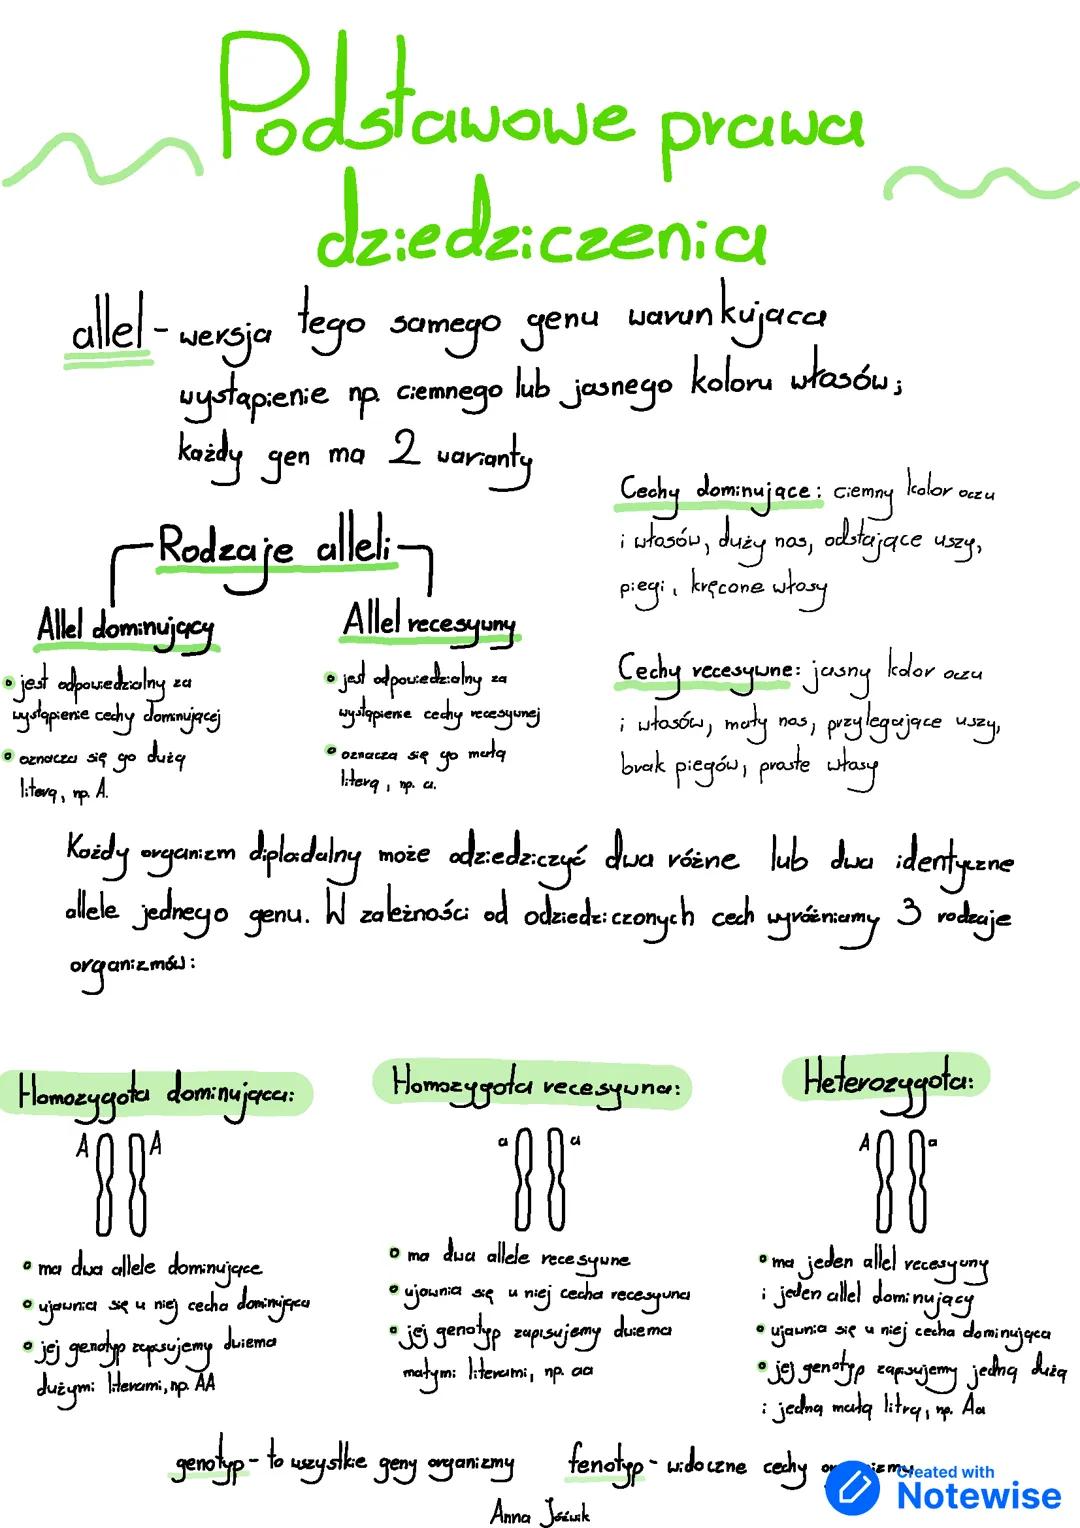 Podstawowe prawa
dziedziczenia
allel - wersja tego samego genu warunkująca
wystąpienie np. ciemnego lub jasnego koloru włosów;
każdy gen ma 2 warianty
Rodzaje alleli
Allel dominujący
• jest odpowiedzialny za
wystąpienie cechy dominującej
• oznacza się go dużą
literą, np. A.
Allel recesywny
• jest odpowiedzialny za
wystąpienie cechy recesywnej
• oznacza się go małą
literą, np. a.
Cechy dominujące: ciemny kolor oczu
i włosów, duży nos, odstające uszy,
piegi, kręcone włosy
Cechy recesywne: jasny kolor oczu
i włosów, mały nos, przylegające uszy,
brak piegów, proste włosy
Każdy organizm diploidalny może odziedziczyć dwa różne lub dwa identyczne
allele jednego genu. W zależności od odziedziczonych cech wyróżniamy 3 rodzaje
organizmów:
Homozygota dominująca:
A A
• ma dwa allele dominujące
• ujawnia się u niej cecha dominująca
• jej genotyp zapisujemy dwiema
dużymi literami, np. AA
Homozygota recesywna:
a a
• ma dwa allele recesywne
• ujawnia się u niej cecha recesywna
• jej genotyp zapisujemy dwiema
małymi literami, np. aa
Heterozygota:
A a
• ma jeden allel recesywny
i jeden allel dominujący
• ujawnia się u niej cecha dominująca
• jej genotyp zapisujemy jedną dużą
i jedną małą litrą, np. Aa
genotyp - to wszystkie geny organizmy
fenotyp - widoczne cechy
Anna Jóźwik
Created with
Notewise